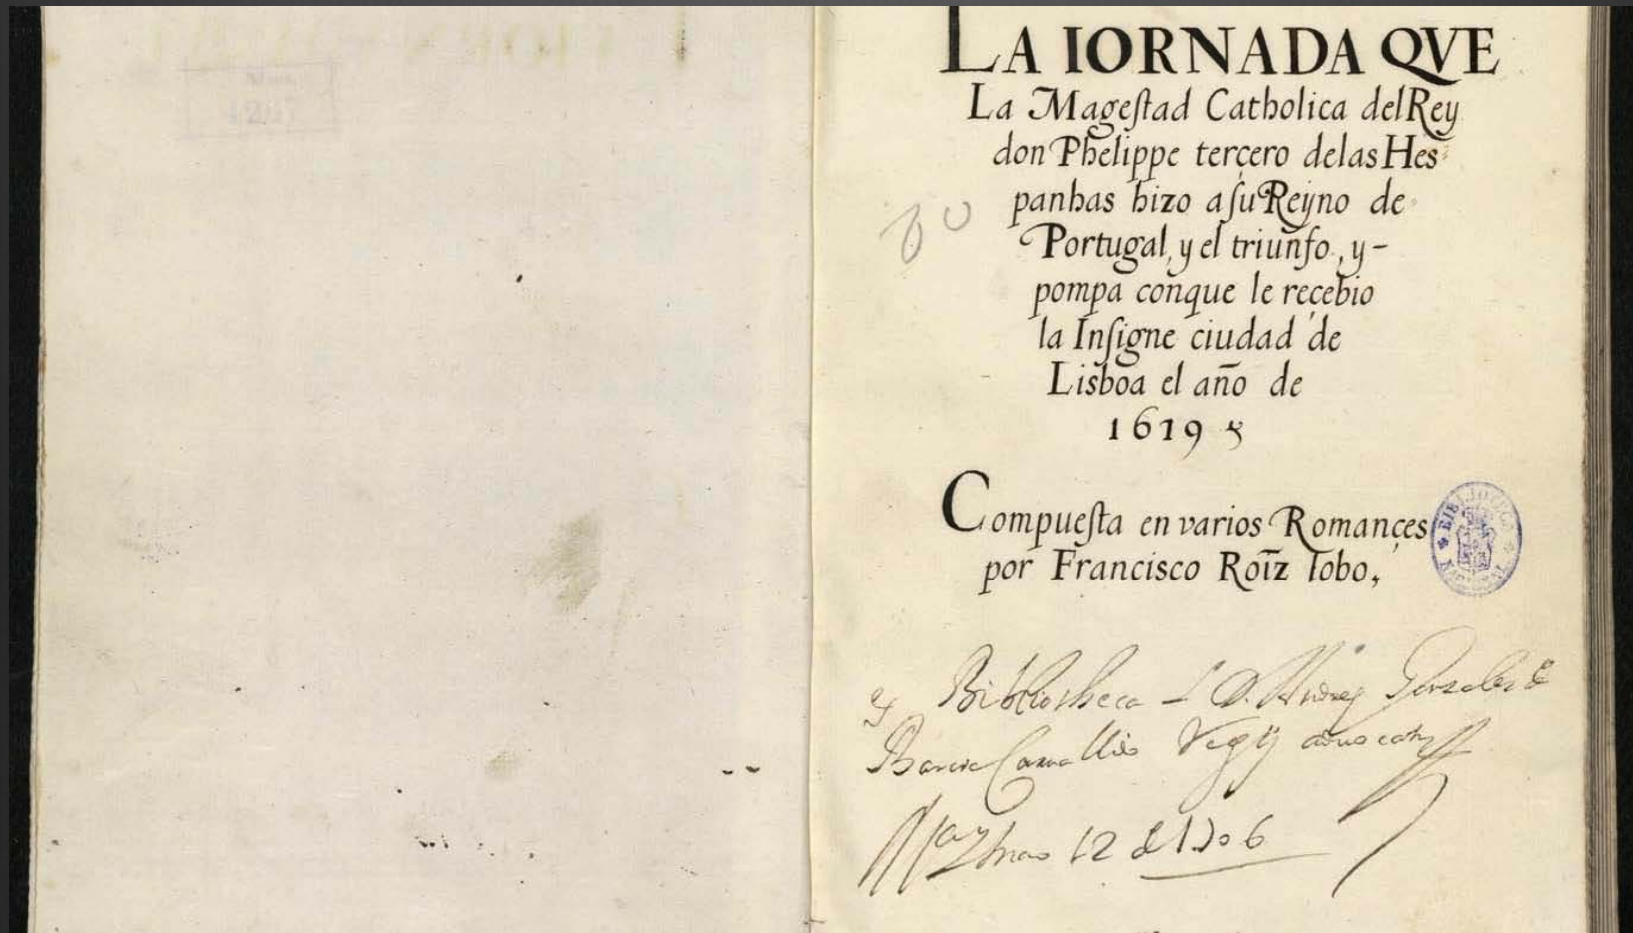 LA IORNADA QVE
La Mageſtad Catholica delRey
don Phelippe terçero delas Hes
panhas hizo a ſu Reyno de
Portugal, y el triunfo, y-
pompa conque le reçebio
la Inſigne ciudad de
Lisboa el año de
1619
Compueſta en varios Romançes
por Francisco Roĩz lobo,
BIBLIOTECA NACIONAL
Bibliotheca D. Andrez Gonzalez de
Barcia Carvallido
12 de 1706